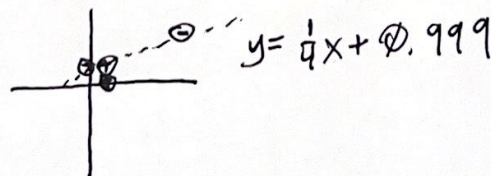 y= 1/4x + 0.999